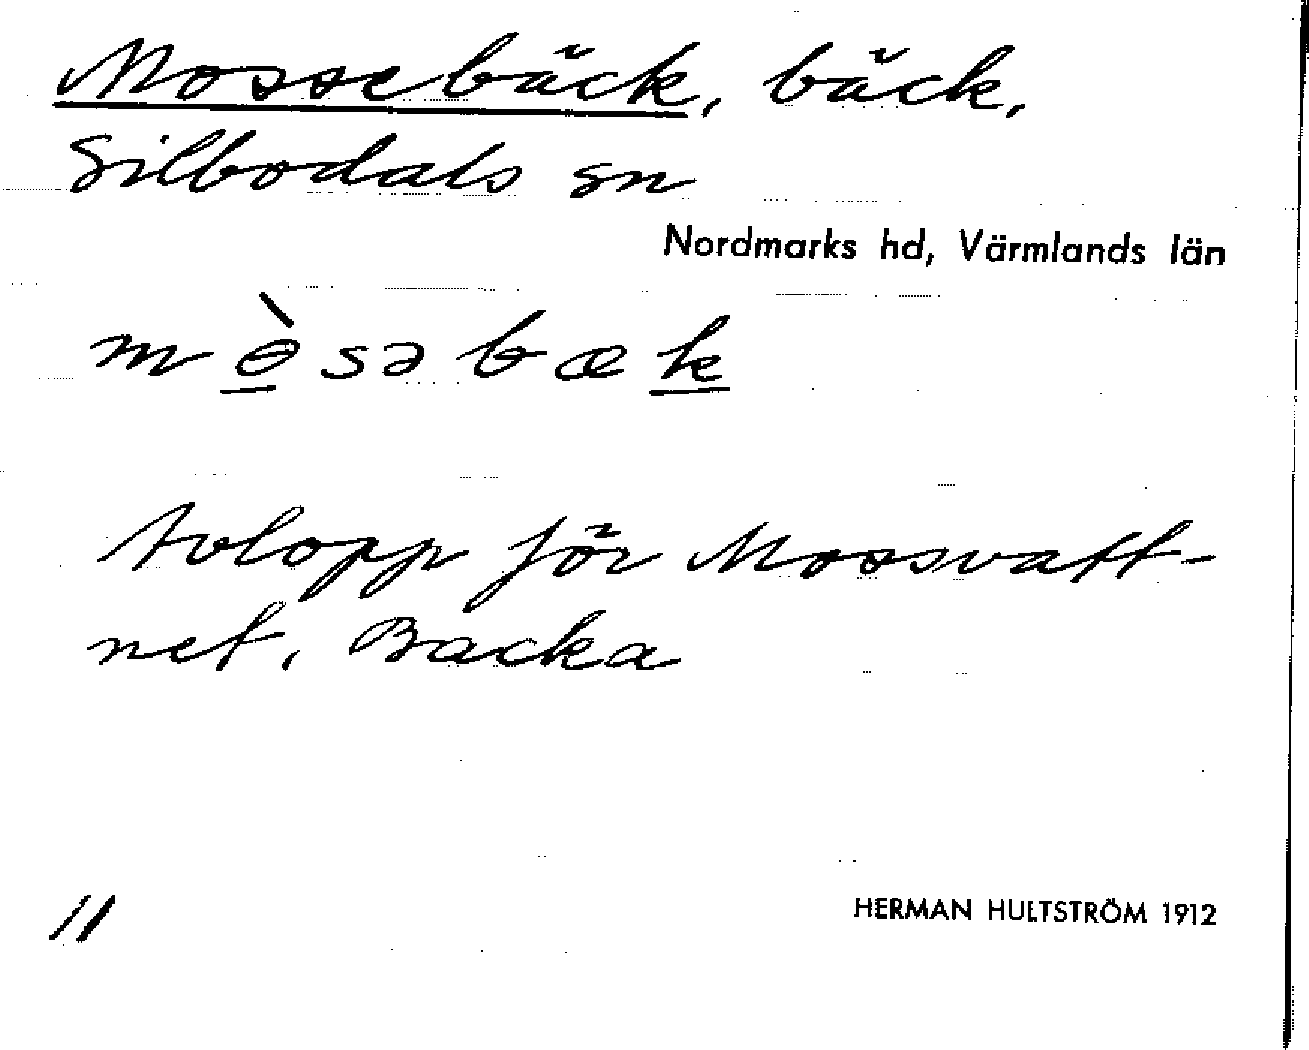 Mossebäck, bäck,
Silbodals sn
Nordmarks hd, Värmlands län
mɵ̱̀səbæḵ
Avlopp för Mossvatt-
net, Backa
11
HERMAN HULTSTRÖM 1912